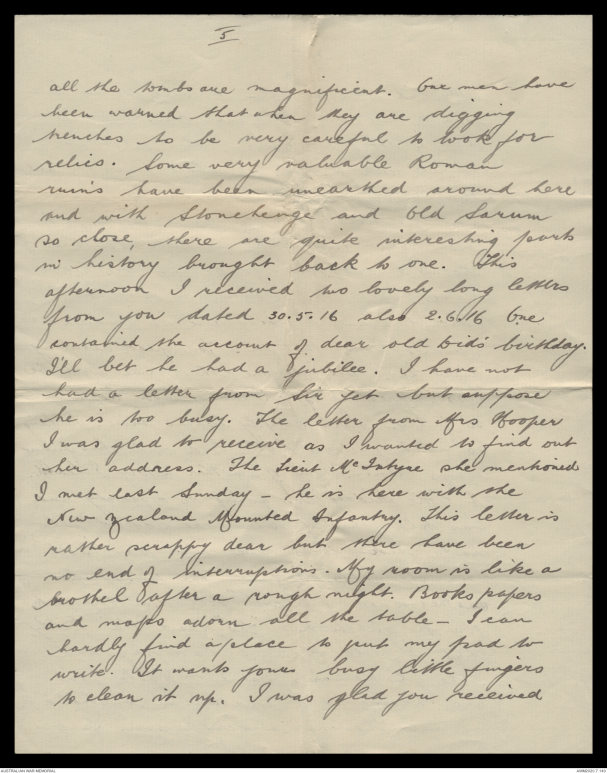 5
all the tombs are magnificent. Our men have
been warned that when they are digging
trenches to be very careful to look for
relics. Some very valuable Roman
ruins have been unearthed around here
and with Stonehenge and Old Sarum
so close, there are quite interesting parts
in history brought back to one. This
afternoon I received two lovely long letters
from you dated 30.5.16 also 2.6.16 One
contained the account of dear old Sid's birthday.
I'll bet he had a jubilee. I have not
had a letter from Sir yet but suppose
he is too busy. The letter from Mrs Hooper
I was glad to receive as I wanted to find out
her address. The Lieut McIntyre she mentioned
I met last Sunday - he is here with the
New Zealand Mounted Infantry. This letter is
rather scrappy dear but there have been
no end of interruptions. My room is like a
brothel after a rough night. Books papers
and maps adorn all the table - I can
hardly find a place to put my pad to
write. It wants yours busy little fingers
to clean it up. I was glad you received
AUSTRALIAN WAR MEMORIAL